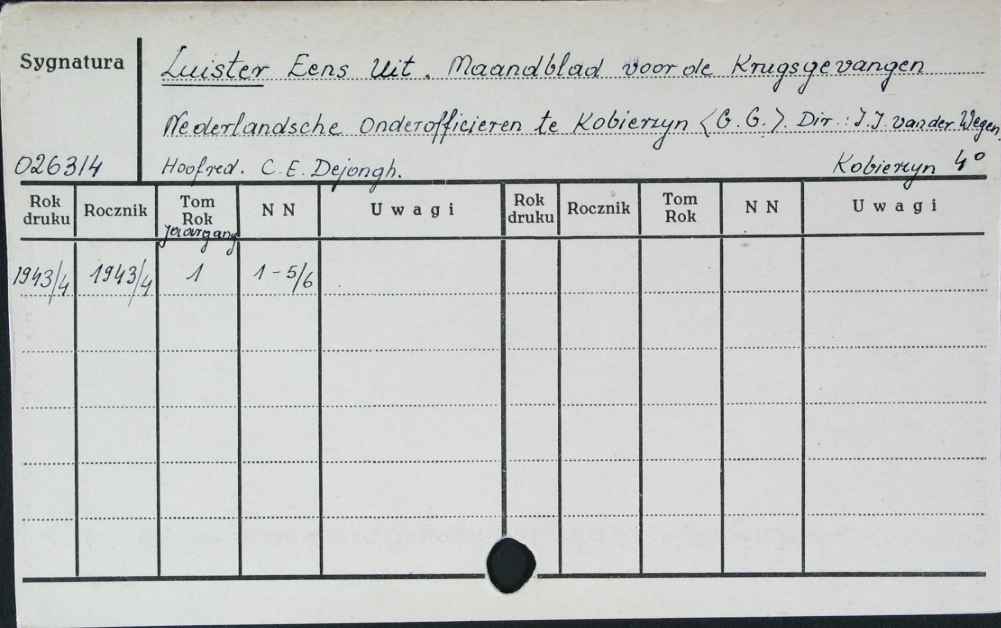 Sygnatura
Luister Eens Uit. Maandblad voor de Krugsgevangen
Nederlandsche Onderofficieren te Kobierzyn (G.G.). Dir.: J.J. van der Wegen,
026314
Hoofred. C.E. Dejongh.
Kobierzyn 4°
Rok druku Rocznik Tom Rok Jaargang NN Uwagi Rok druku Rocznik Tom Rok NN Uwagi
1943/4 1943/4 1 1-5/6